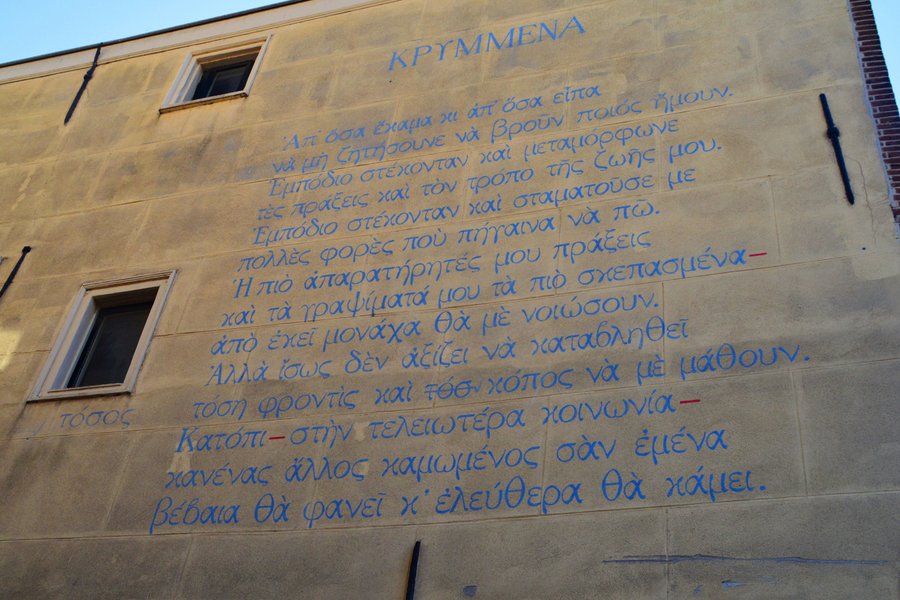 ΚΡΥΜΜΕΝΑ
Ἀπ' ὅσα ἔκαμα κι ἀπ' ὅσα εἶπα
νὰ μὴ ζητήσουνε νὰ βροῦν ποιός ἤμουν.
Ἐμπόδιο στέκονταν καὶ μεταμόρφωνε
τὲς πράξεις καὶ τὸν τρόπο τῆς ζωῆς μου.
Ἐμπόδιο στέκονταν καὶ σταματοῦσε με
πολλὲς φορὲς ποὺ πήγαινα νὰ πῶ.
Ἡ πιὸ ἀπαρατήρητές μου πράξεις
καὶ τὰ γραψίματά μου τὰ πιὸ σκεπασμένα—
ἀπὸ ἐκεῖ μονάχα θὰ μὲ νοιώσουν.
Ἀλλὰ ἴσως δὲν ἀξίζει νὰ καταβληθεῖ
τόση φροντὶς καὶ τόσο κόπος νὰ μὲ μάθουν.
τόσος
Κατόπι—στὴν τελειωτέρα κοινωνία—
κανένας ἄλλος καμωμένος σὰν ἐμένα
βέβαια θὰ φανεῖ κ' ἐλεύθερα θὰ κάμει.